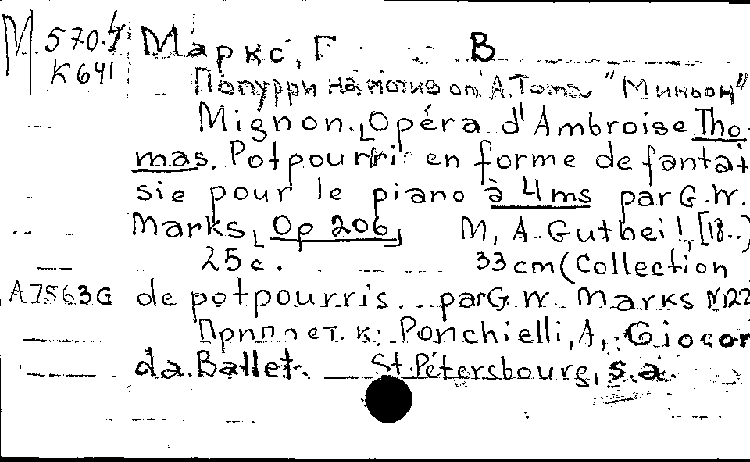 М 570.4 Маркс, Г В
К 641
Попурри на мотив оп А. Тома "Миньон"
Mignon. Opéra d'Ambroise Tho-
mas. Potpourri en forme de fantai
sie pour le piano à 4 ms par G. W.
Marks, Op 206, M, A. Gutheil, [18..]
25 c. 33 cm (Collection
A7563G de potpourris... par G. W. Marks N 122
Приплет. к: Ponchielli, A., Giocon
da. Ballet. St. Pétersbourg, s.a.